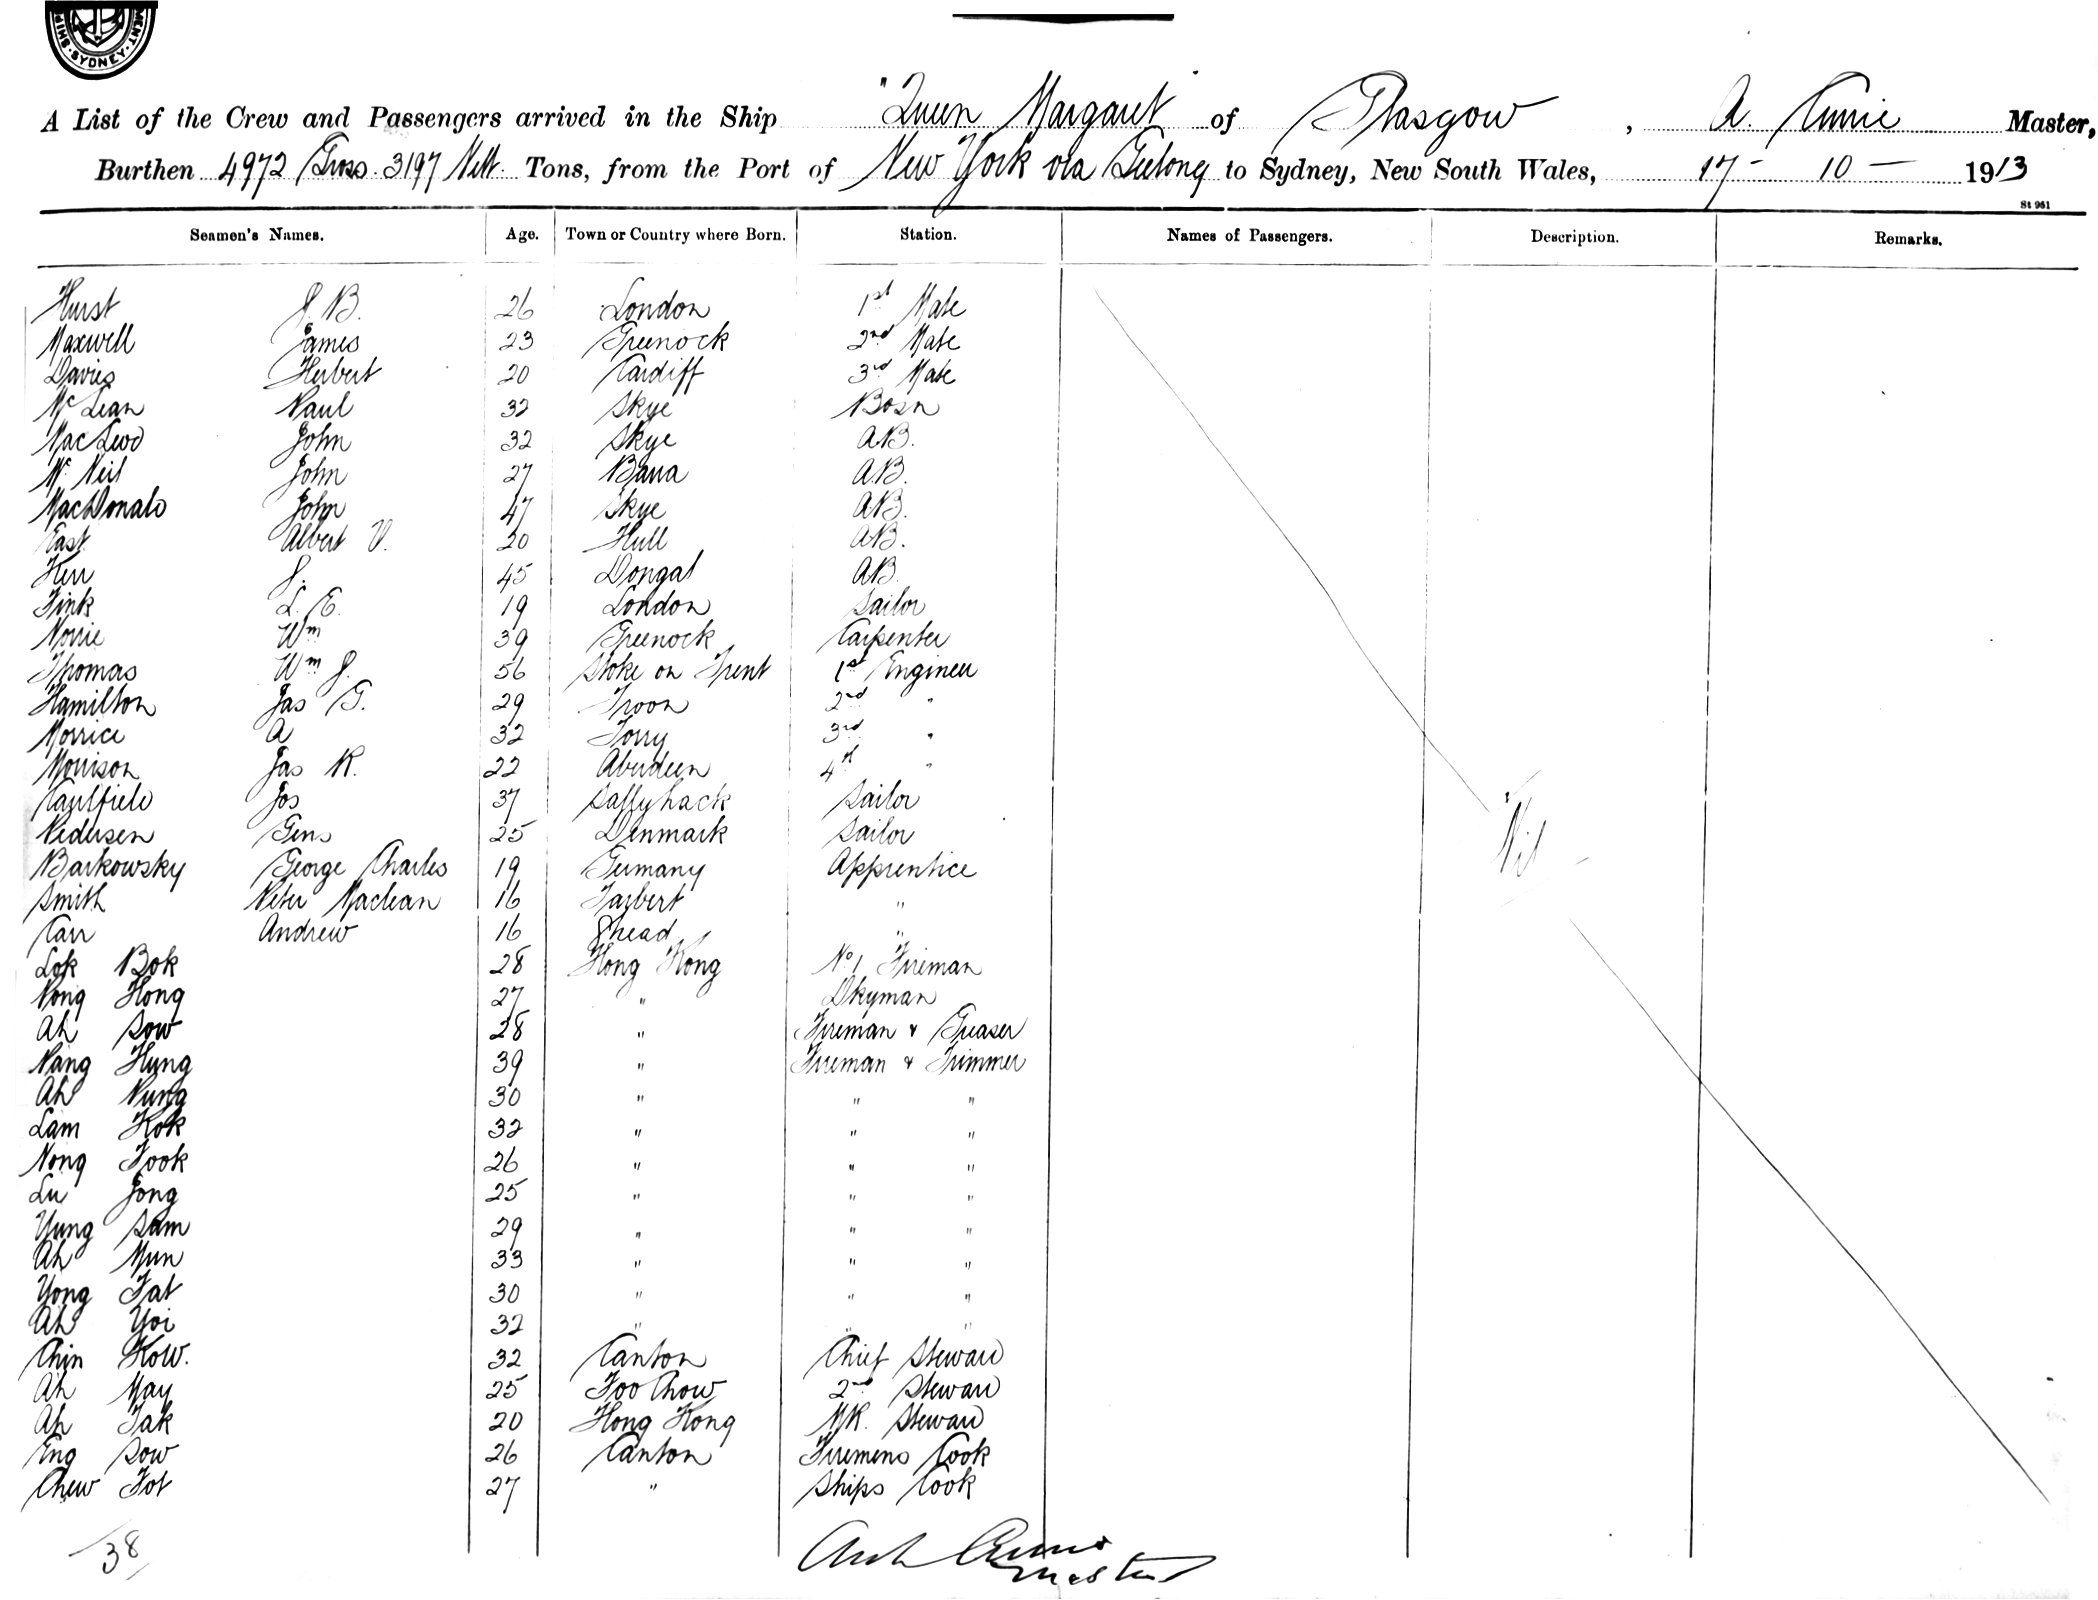 SHIP MENT. SYDNEY
A List of the Crew and Passengers arrived in the Ship "Queen Margaret" of Glasgow, A. Master,
Burthen 4972 Gross. 3197 Nett. Tons, from the Port of New York via Geelong to Sydney, New South Wales, 17 - 10 - 1913
St 961
Seamen's Names. Age. Town or Country where Born. Station. Names of Passengers. Description. Remarks.
Hurst J. B. 26 London 1st Mate
Maxwell James 23 Greenock 2nd Mate
Davies Herbert 20 Cardiff 3rd Mate
Mc Lean Paul 32 Skye Bosn
MacLeod John 32 Skye A.B.
Mc Neil John 27 Barra A.B.
MacDonald John 47 Skye A.B.
East Albert V. 20 Hull A.B.
Kerr J. 45 Dongal A.B.
Fink L. E. 19 London Sailor
Norrie Wm 39 Greenock Carpenter
Thomas Wm J. 56 Stoke on Trent 1st Engineer
Hamilton Jas G. 29 Troon 2nd "
Morrice A 32 Torry 3rd "
Morrison Jas R. 22 Aberdeen 4th "
Caulfield Jos 37 Ballyhack Sailor
Pedersen Gens 25 Denmark Sailor
Barkowsky George Charles 19 Germany Apprentice
Smith Peter Maclean 16 Tarbert "
Carr Andrew 16 "
Lok Bok 28 Hong Kong No 1 Fireman
Pong Hong 27 " Dkyman
Ah Sow 28 " Fireman & Greaser
Nang Hung 39 " Fireman & Trimmer
Ah Nung 30 " " "
Lam Kok 32 " " "
Nong Fook 26 " " "
Lu Jong 25 " " "
Yung Sam 29 " " "
Ah Mun 33 " " "
Yong Fat 30 " " "
Ah Yoi 32 " " "
Chin Kow. 32 Canton Chief Steward
Ah May 25 Foo Chow 2nd Steward
Ah Tak 20 Hong Kong M.R. Steward
Eng Sow 26 Canton Firemens Cook
Chew Fot 27 " Ships Cook
Nil
38
Arch Master